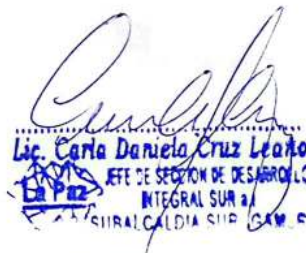 Lic. Carla Daniela Cruz Leaño
JEFE DE SECCION DE DESARROLLO
La Paz
INTEGRAL SUR a.i
SUBALCALDIA SUR GAM